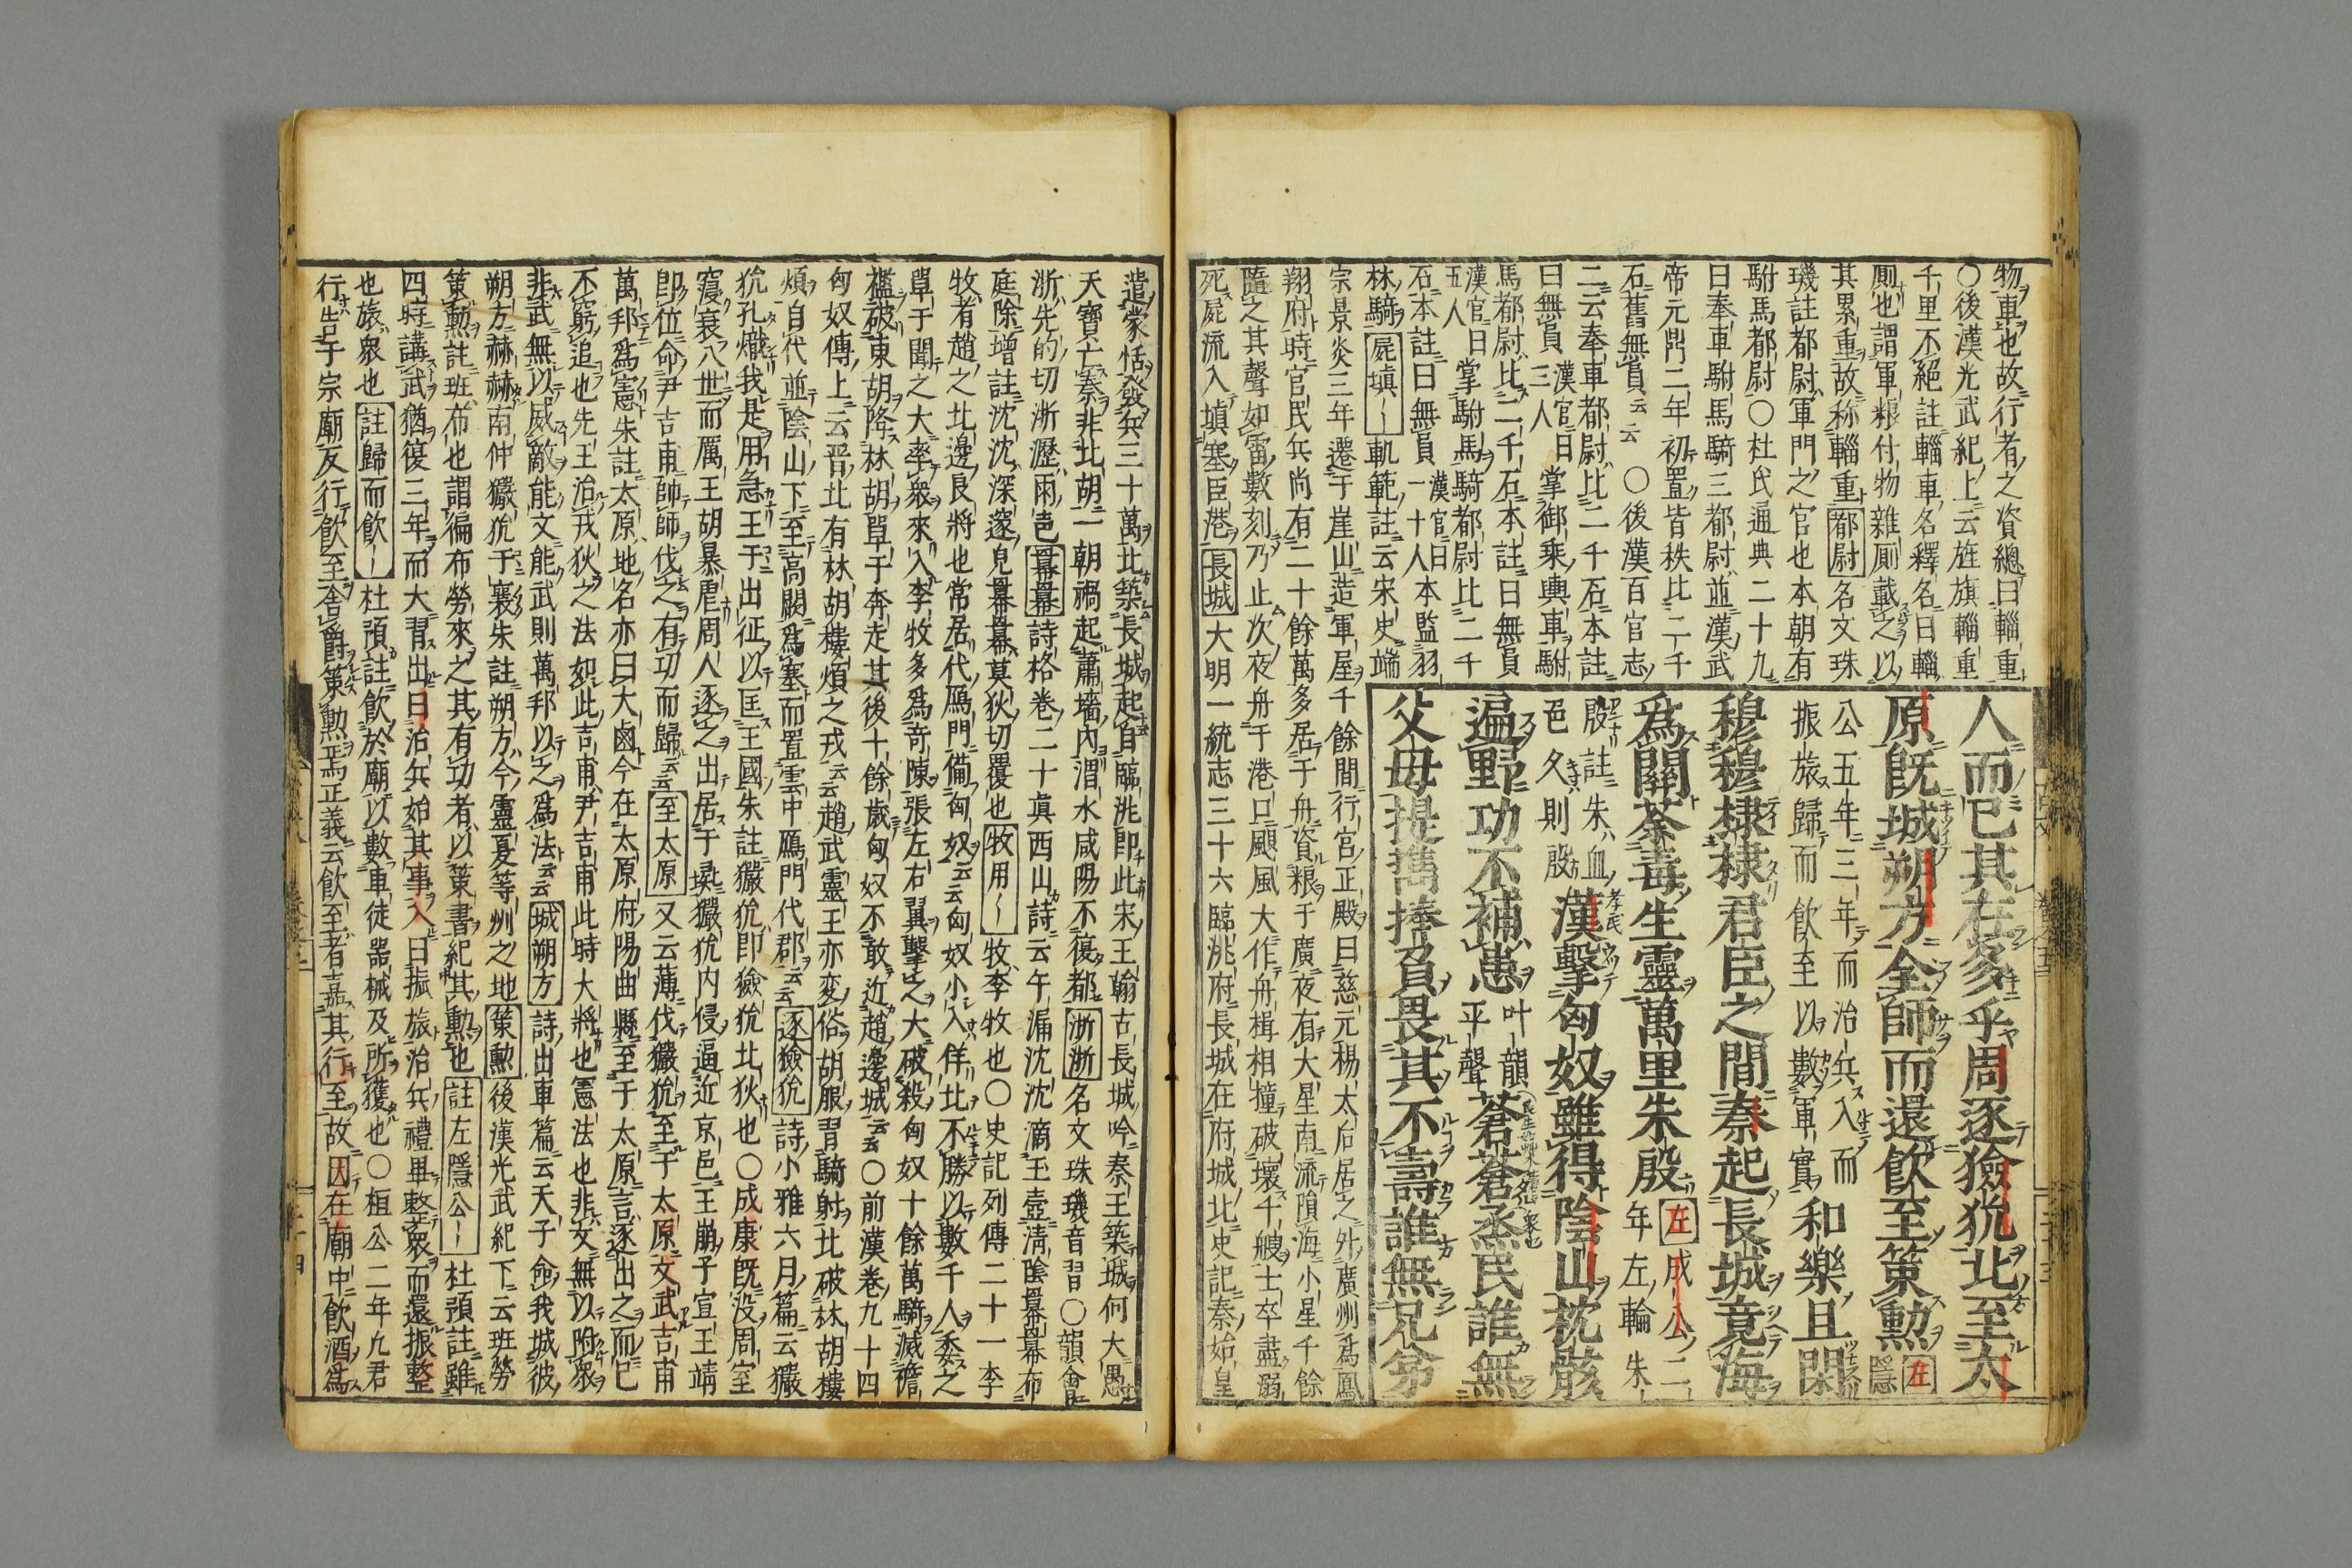 物車也故行者之資總曰輜重
〇後漢光武紀上云旌旗輜重
千里不絕註輜車名釋名曰輜
厠也謂軍粮什物雜厠載之以
其累重故称輜重都尉名文珠
璣註都尉軍門之官也本朝有
駙馬都尉〇杜氏通典二十九
曰奉車駙馬騎三都尉並漢武
帝元鼎二年初置皆秩比二千
石舊無員云云〇後漢百官志
二云奉車都尉比二千石本註
曰無員漢官曰三人掌御乘輿車駙
馬都尉比二千石本註曰無員
漢官曰五人掌駙馬騎都尉比二千
石本註曰無員漢官曰十人本監羽
林騎屍塡〡軌範註云宋史端
宗景炎三年遷于崖山造軍屋千餘間行宮正殿曰慈元楊太后居之外廣州爲鳳
翔府時官民兵尚有二十餘萬多居于舟資粮于廣夜有大星南流隕海小星千餘
隨之其聲如雷數刻乃止次夜舟于港口颶風大作舟楫相撞破壞千艘士卒盡溺
死屍流入塡塞臣港長城大明一統志三十六臨洮府長城在府城北史記秦始皇
人而已其在多乎周逐獫狁北至太
原旣城朔方全師而還飮至策勲左隱
公五年三年而治兵入而振旅歸而飮至以數軍實和樂且閑
穆穆棣棣君臣之間秦起長城竟海
爲關荼毒生靈萬里朱殷左成公二年左輪朱
殷註朱血色久則殷漢擊匈奴雖得陰山枕骸
遍野功不補患叶韻平聲蒼蒼烝民誰無
父母提携捧負畏其不壽誰無兄弟
遣蒙恬發兵三十萬北築長城起自臨洮卽此宋王翰古長城吟秦王築城何大愚
天寶亡秦非北胡一朝禍起蕭墻內渭水咸陽不復都淅淅名文珠璣音習〇韻會
淅先的切淅瀝雨皃羃羃詩格卷二十眞西山詩云午漏沈沈滴玉壺淸陰羃羃布
庭除增註沈沈深邃皃羃羃莫狄切覆也牧用〡牧李牧也〇史記列傳二十一李
牧者趙之北邊良將也常居代鴈門備匈奴云云匈奴小入佯北不勝以數千人委之
單于聞之大率衆來入李牧多爲奇陳張左右翼擊之大破殺匈奴十餘萬騎滅襜
襤破東胡降林胡單于奔走其後十餘歲匈奴不敢近趙邊城云云〇前漢卷九十四
匈奴傳上云晋北有林胡樓煩之戎云云趙武靈王亦変俗胡服習騎射北破林胡樓
煩自代並陰山下至高闕爲塞而置雲中鴈門代郡云云逐獫狁詩小雅六月篇云玁
狁孔熾我是用急王于出征以匡王國朱註玁狁卽獫狁北狄也〇成康旣没周室
寖衰八世而厲王胡暴虐周人逐之出居于彘玁狁内侵逼近京邑王崩子宣王靖
卽位命尹吉甫帥師伐之有功而歸云云至太原又云薄伐玁狁至于太原文武吉甫
萬邦爲憲朱註太原地名亦曰大鹵今在太原府陽曲縣至于太原言逐出之而已
不窮追也先王治戎狄之法如此吉甫尹吉甫此時大將也憲法也非文無以附衆
非武無以威敵能文能武則萬邦以之爲法云云城朔方詩出車篇云天子命我城彼
朔方赫赫南仲玁狁于襄朱註朔方今靈夏等州之地策勲後漢光武紀下云班勞
策勲註班布也謂徧布勞來之其有功者以策書紀其勲也註左隱公〡杜預註雖
四時講武猶復三年而大習出曰治兵始其事入曰振旅治兵禮畢整衆而還振整
也旅衆也註歸而飮〡杜預註飮於廟以數車徒器械及所獲也〇桓公二年九君
行告于宗廟反行飮至舍爵策勲焉正義云飮至者嘉其行至故因在廟中飮酒爲